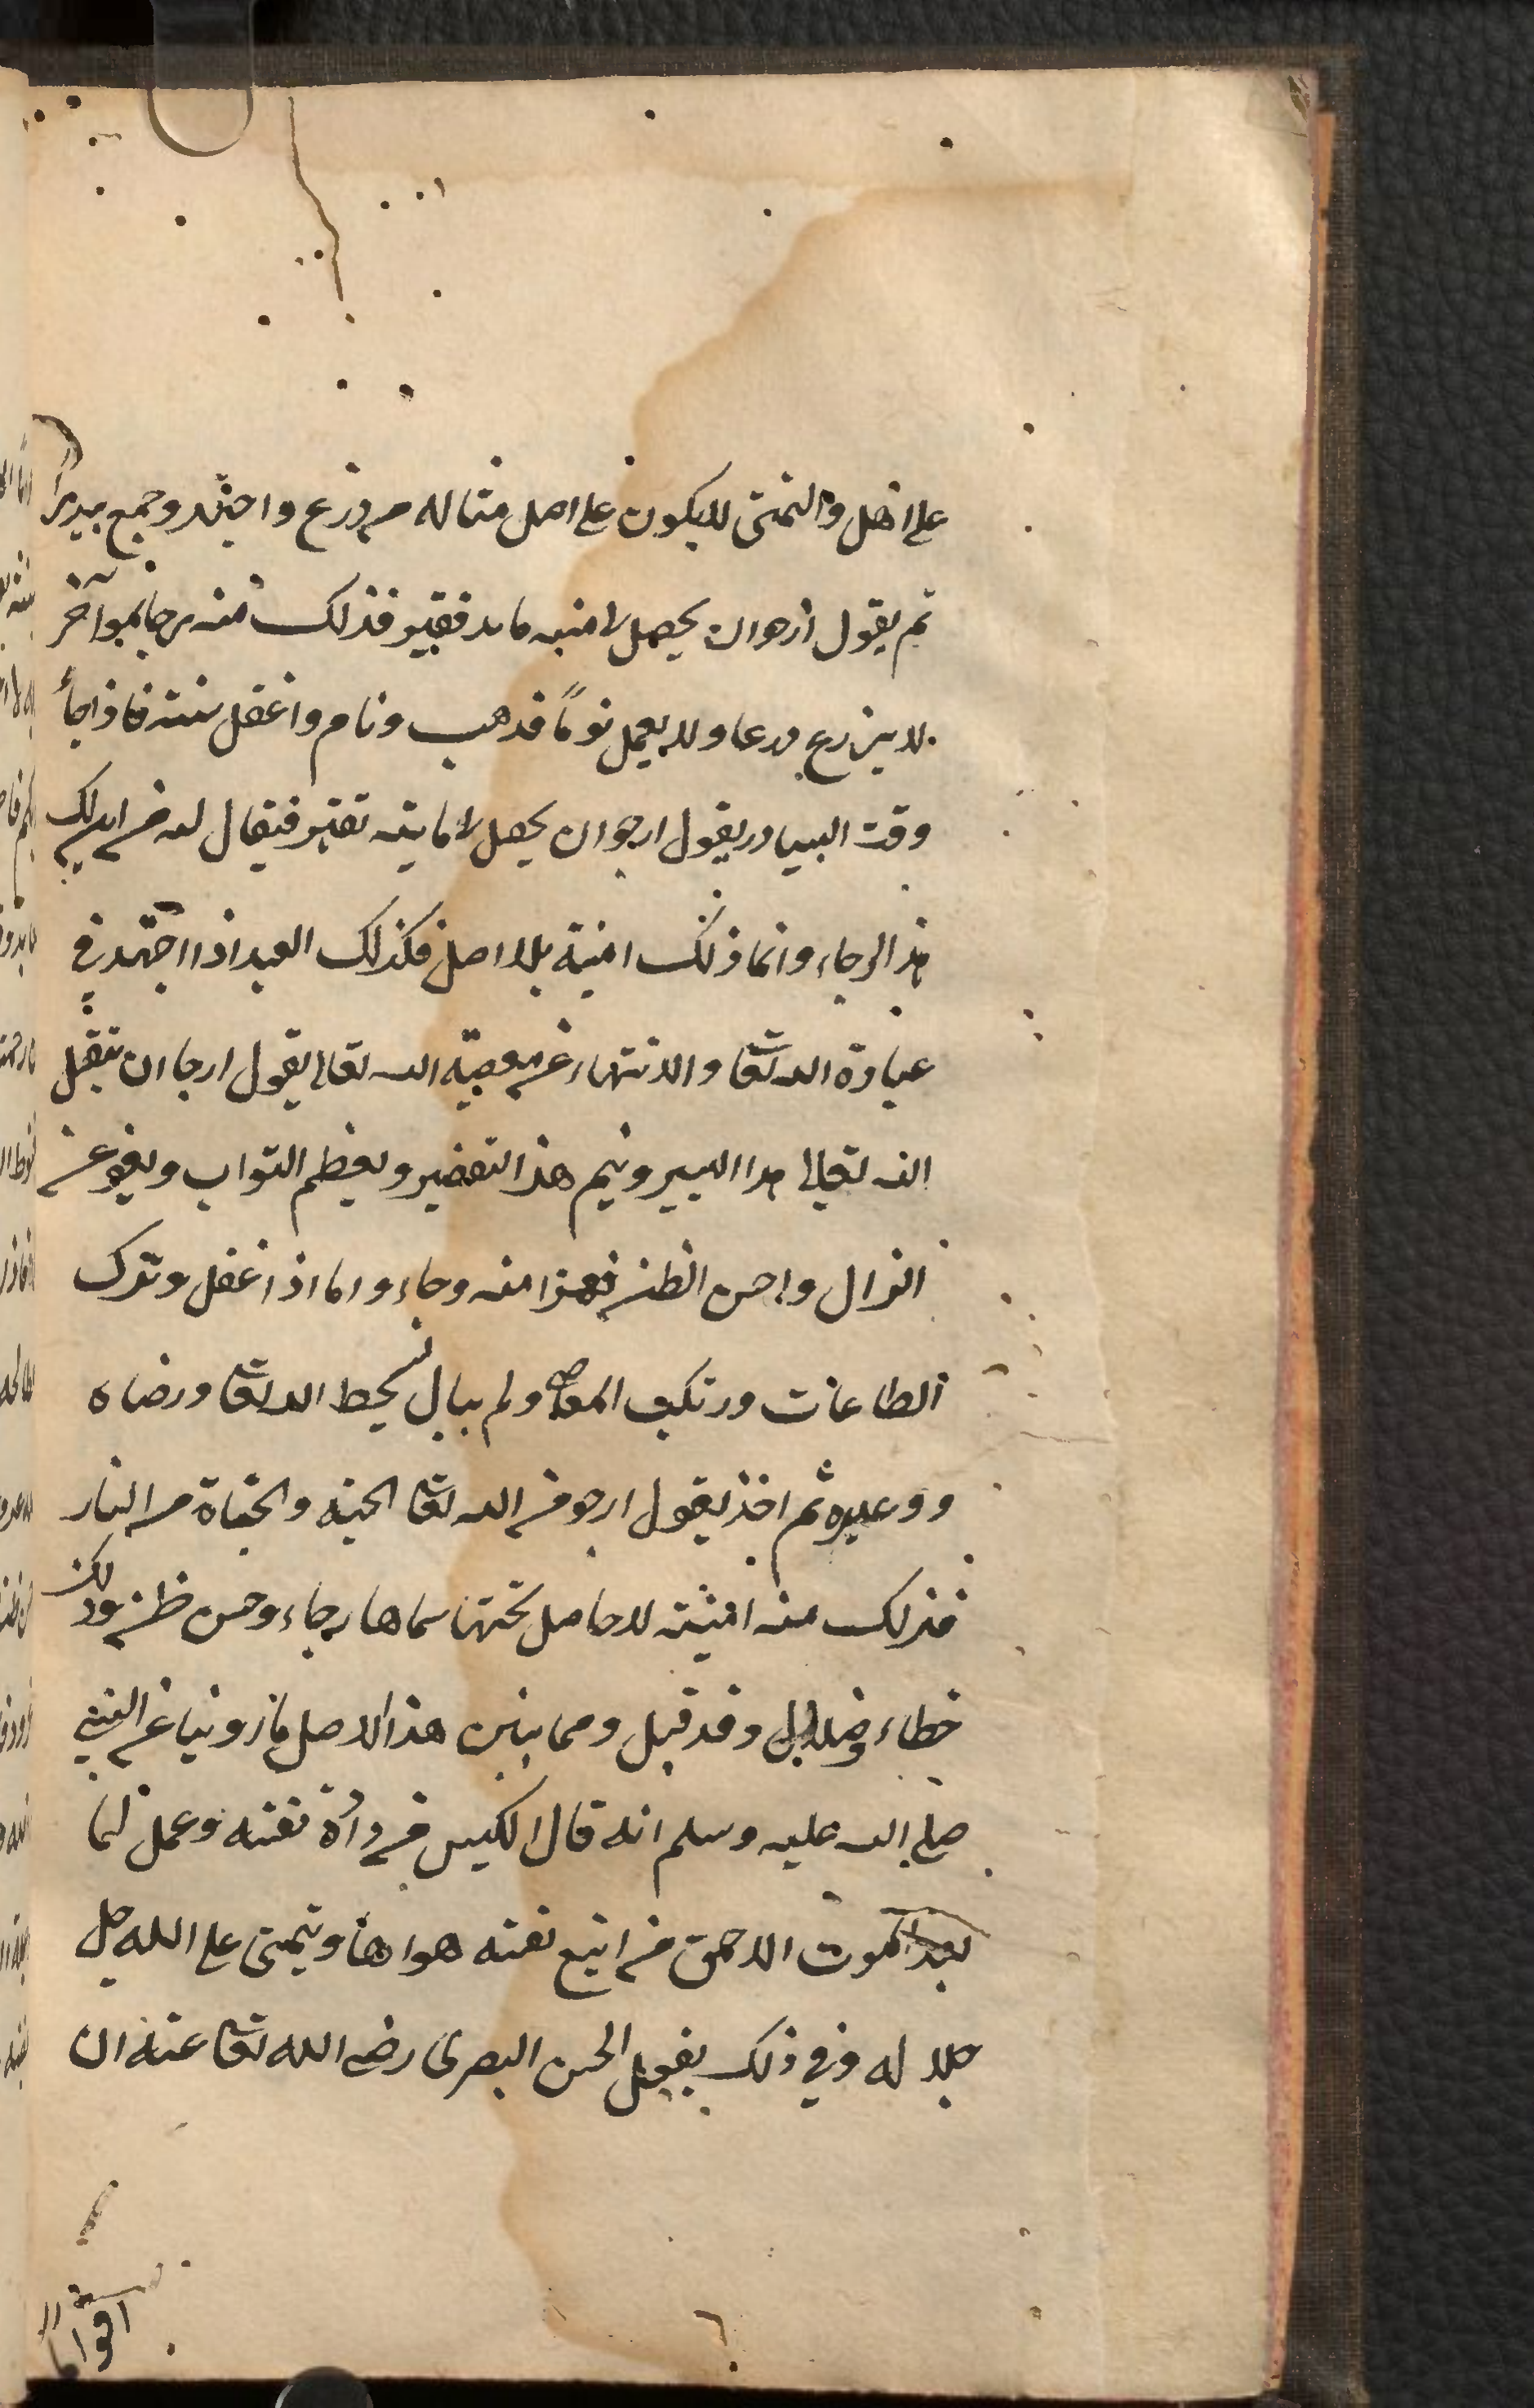 على اصل والتمنى لا يكون على اصل مثاله من زرع واجتهد وجمع بيدرا
ثم يقول ارجوان يحصل لى منه مايه قفيز فذلك منه رجا واخر
لا يزرع زرعا ولا يعمل يوماً فذهب ونام واغفل سنته فاذا جأ
وقت البيادر يقول ارجوان يحصل لى ماية قفيز فيقال له من اين لك
هذا الرجاء وانما ذلك امنية بلا اصل فكذلك العبد اذا اجتهد فى
عبادة الله تعا والانتهاء عن معصية الله تعالى يقول ارجا ان يتقبل
الله تعالى هذا اليسير ويتم هذا التقصير ويعظم الثواب ويعفو عن
الزال واحسن الظن فهذا منه رجاء واما اذا غفل وترك
الطاعات ورتكب المعاصى ولم يبال بسخط الله تعا ورضاه
ووعيده ثم اخذ يقول ارجو من الله تعا الجنه والنجاة من النار
فذلك منه امنية لا حاصل تحتها سماها رجاء وحسن ظن وذلك
خطاء وضلال وقد قيل ومما يبين هذا الاصل ما روينا عن النبى
صلى الله عليه وسلم انه قال الكيس من دان نفسه وعمل لما
بعد الموت الاحمق من اتبع نفسه هواها ويتمنى على الله جل
جلاله وفى ذلك يقول الحسن البصرى رضى الله تعا عنه ان
اقواما
٦